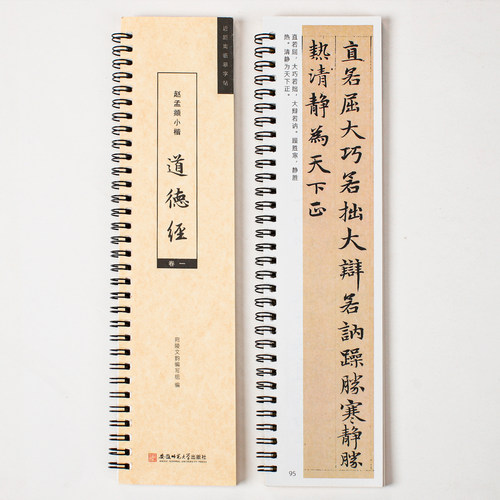 近距离临摹字帖
赵孟頫小楷
道德经
卷一
安徽师范大学出版社
直若屈，大巧若拙，大辩若讷，躁胜寒，静胜
热，清静为天下正。
直若屈大巧若拙大辯若訥躁勝寒静勝
熱清静為天下正
95